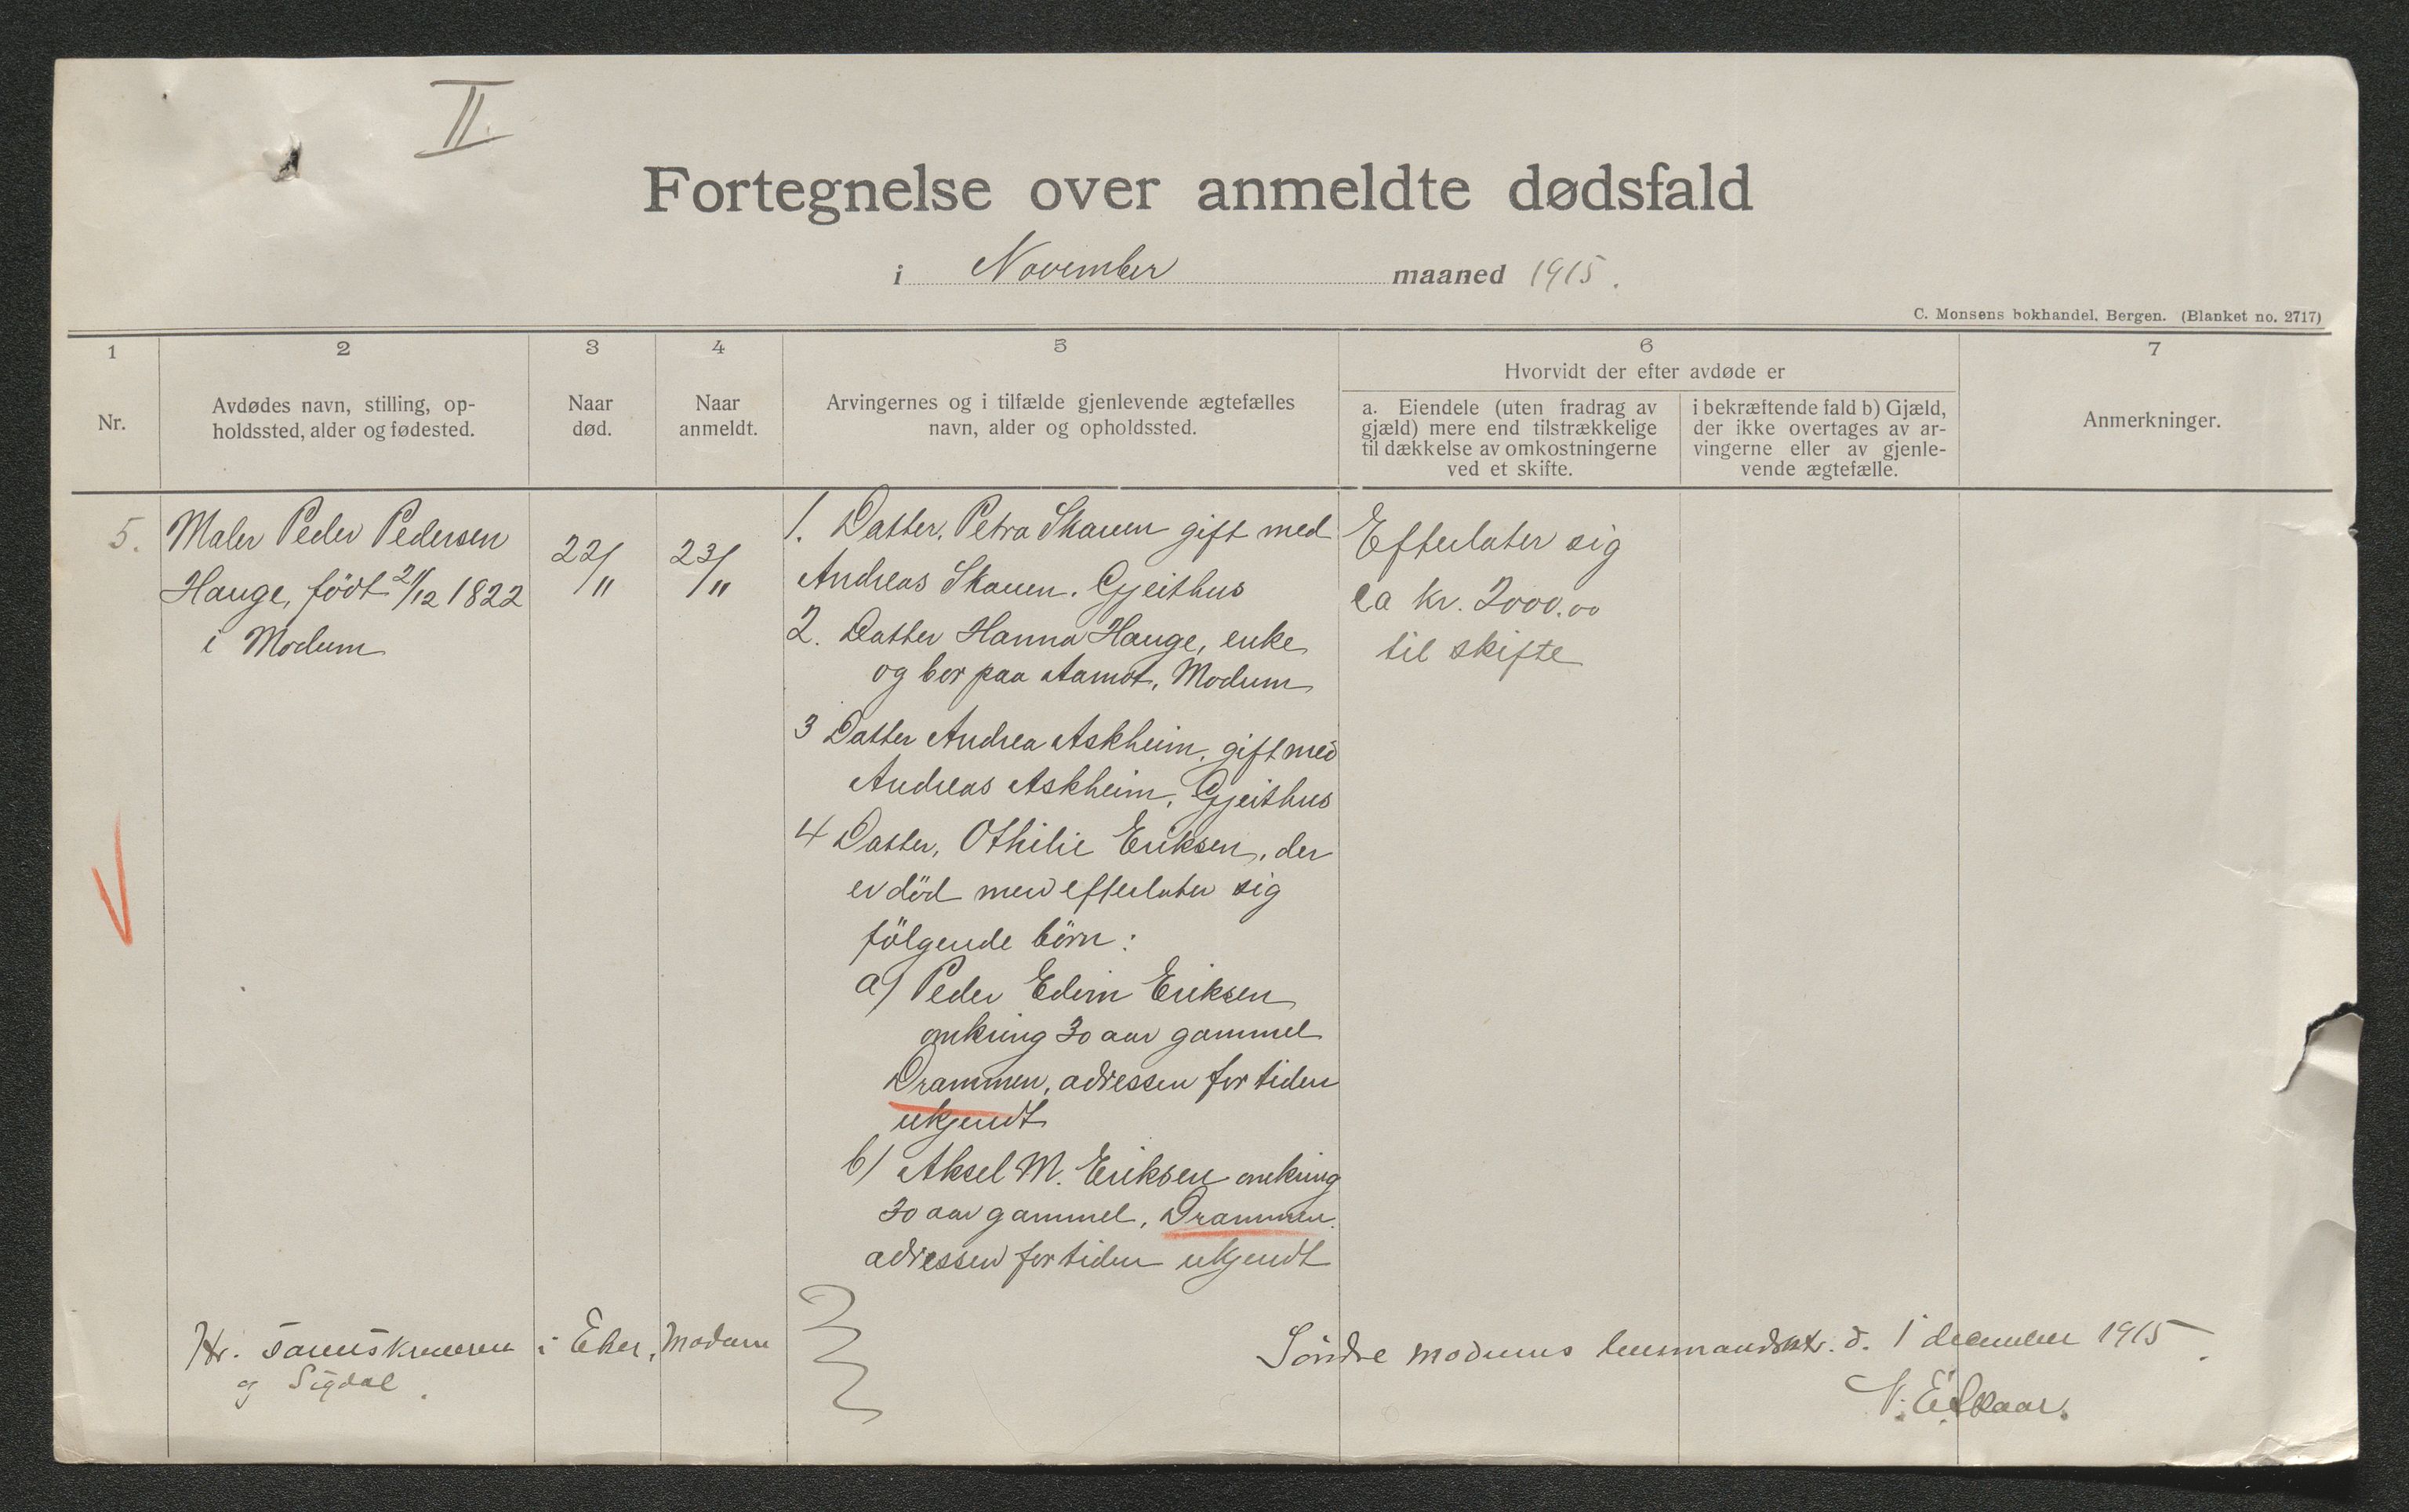 II.
Fortegnelse over anmeldte dødsfald
i November maaned 1915.
C. Monsens bokhandel, Bergen. (Blanket no. 2717)
1
2
3
4
5
6
7
Nr.
Avdødes navn, stilling, op-
holdssted, alder og fødested.
Naar
død.
Naar
anmeldt.
Arvingernes og i tilfælde gjenlevende ægtefælles
navn, alder og opholdssted.
Hvorvidt der efter avdøde er
a. Eiendele (uten fradrag av
gjæld) mere end tilstrækkelige
til dækkelse av omkostningerne
ved et skifte.
i bekræftende fald b) Gjæld,
der ikke overtages av ar-
vingerne eller av gjenle-
vende ægtefælle.
Anmerkninger.
5.
Maler Peder Pedersen
Hauge, født 21/12 1822
i Modum
22/11
23/11
1. Datter, Petra Skauen gift med
Andreas Skauen. Gjeithus
2. Datter Hanna Hauge, enke
og bor paa Aamot, Modum
3 Datter Andrea Askheim, gift med
Andreas Askheim, Gjeithus
4 Datter, Othilie Eriksen, der
er död men efterlater sig
fölgende börn:
a) Peder Edvin Eriksen
omkring 30 aar gammel
Drammen, adressen for tiden
ukjendt
b) Aksel M. Eriksen omkring
30 aar gammel, Drammen.
adressen for tiden ukjendt
Efterlater sig
ca kr. 2000.00
til skifte
Hr. sorenskriveren i Eker, Modum
og Sigdal.
Söndre Modums lensmandsktr. d. 1 december 1915.